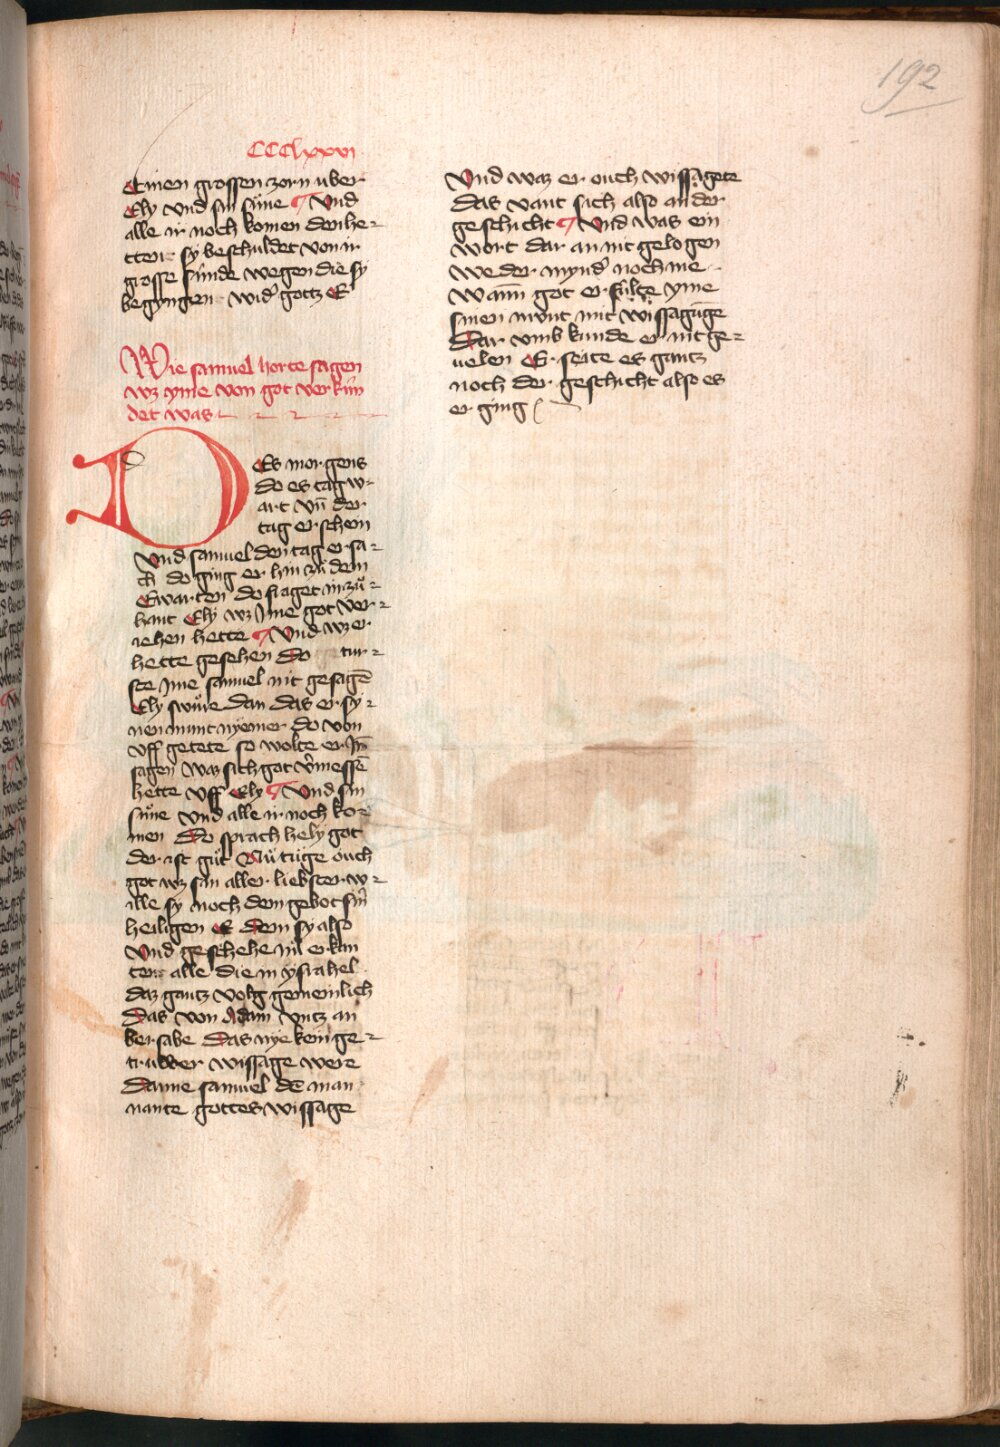 192
CCClxxvi
Einen grossen zorn uber
Ely vnd sin süne ¶ Vnd
alle ir noch komen den he⸗
tten sy beschuldet von ir
grosse sünde wegen die sy
begingen wid' gottz Er
Wie samuel horte sagen
wz yme von got verkün
det was
DEs morgens
do es tag w⸗
art vn̄ der
tag erschein
Vnd samuel den tag ersa⸗
ch do ging er hin zů dem
Ewarten do fraget in zů⸗
hant Ely wz Ime got ver⸗
iehen hette ¶ Vnd wz er
hette gesehen Do tur⸗
ste Ime samuel nit gesagē
Ely swůre dan das er sy⸗
nen munt nyemer do von
vff getete so wolte er Im̄
sagen Waz sich got v'messē
hette vff Ely ¶ Vnd sin
süne vnd alle ir noch ko⸗
men Do sprach hely got
der ist gůt Nů tüge ouch
got wz sin aller liebster w⸗
ille sy noch dem gebot sin̄
heiligen E Dem sy also
Vnd geschehe nü erkan
ten alle die in ysrahel
daz gantz volg gemeinlich
Das von Adam vntz an
bersabe Das nye kein ge⸗
truwer wissage were
Danne samuel dē man
nante gottes wissage
Vnd waz er ouch wissagete
das vant sich also an der
geschicht ¶ Vnd was ein
wort dar an nit gelogen
weder mynd' noch me
Wann got erfülte yme
sinen munt mit wissagūge
Dar vmb kunde er nit ge⸗
uelen Er seite es gantz
noch der geschicht also es
er ging